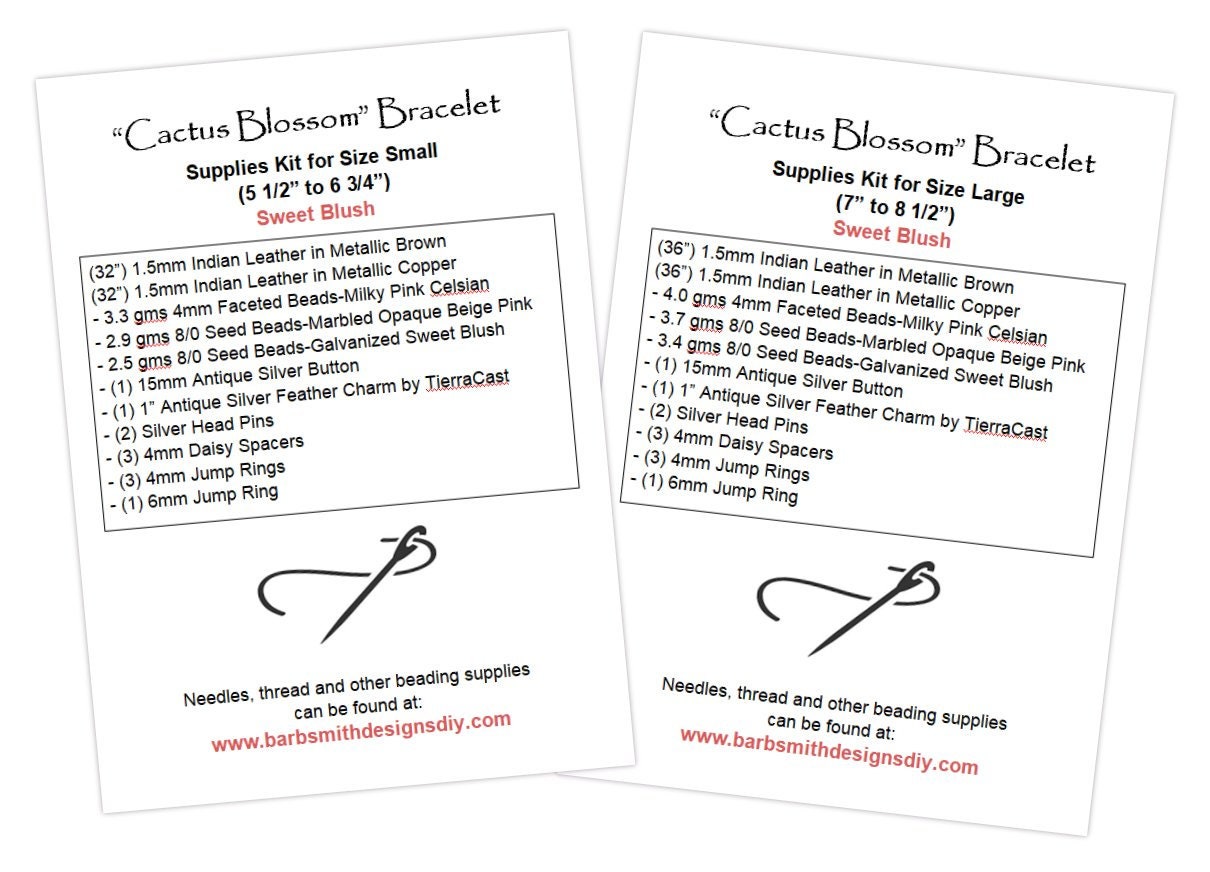 “Cactus Blossom” Bracelet
Supplies Kit for Size Small
(5 1/2” to 6 3/4”)
Sweet Blush
(32”) 1.5mm Indian Leather in Metallic Brown
(32”) 1.5mm Indian Leather in Metallic Copper
- 3.3 gms 4mm Faceted Beads-Milky Pink Celsian
- 2.9 gms 8/0 Seed Beads-Marbled Opaque Beige Pink
- 2.5 gms 8/0 Seed Beads-Galvanized Sweet Blush
- (1) 15mm Antique Silver Button
- (1) 1” Antique Silver Feather Charm by TierraCast
- (2) Silver Head Pins
- (3) 4mm Daisy Spacers
- (3) 4mm Jump Rings
- (1) 6mm Jump Ring
Needles, thread and other beading supplies
can be found at:
www.barbsmithdesignsdiy.com
“Cactus Blossom” Bracelet
Supplies Kit for Size Large
(7” to 8 1/2”)
Sweet Blush
(36”) 1.5mm Indian Leather in Metallic Brown
(36”) 1.5mm Indian Leather in Metallic Copper
- 4.0 gms 4mm Faceted Beads-Milky Pink Celsian
- 3.7 gms 8/0 Seed Beads-Marbled Opaque Beige Pink
- 3.4 gms 8/0 Seed Beads-Galvanized Sweet Blush
- (1) 15mm Antique Silver Button
- (1) 1” Antique Silver Feather Charm by TierraCast
- (2) Silver Head Pins
- (3) 4mm Daisy Spacers
- (3) 4mm Jump Rings
- (1) 6mm Jump Ring
Needles, thread and other beading supplies
can be found at:
www.barbsmithdesignsdiy.com